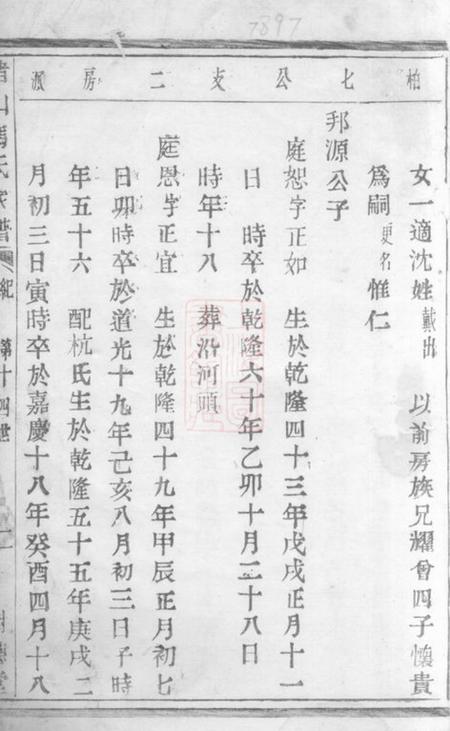 7897
柏七公支二房派
女一適沈姓戴出 以前房族兄耀曾四子懷貴
為嗣更名惟仁
邦源公子
庭恕字正如 生於乾隆四十三年戊戌正月十一
日 時卒於乾隆六十年乙卯十月二十八日
時年十八 葬沿河頭
庭恩字正宜 生於乾隆四十九年甲辰正月初七
日卯時卒於道光十九年己亥八月初三日子時
年五十六 配杭氏生於乾隆五十五年庚戌二
月初三日寅時卒於嘉慶十八年癸酉四月十八
山馮氏家譜 紀 第十四世